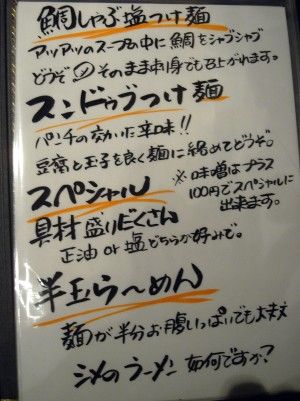 鯛しゃぶ塩つけ麺
アツアツのスープの中に鯛をシャブシャブ
どうぞ そのまま刺身でも召上がれます。
スンドゥブつけ麺
パンチの効いた辛味!!
豆腐と玉子を良く麺に絡めてどうぞ。
スペシャル
※味噌はプラス
100円でスペシャルに
出来ます。
具材盛りだくさん
正油or塩どちらか好みで。
半玉らーめん
麺が半分お腹いっぱいでも大丈夫
シメのラーメン如何ですか?